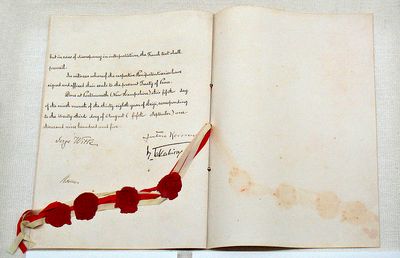 but in case of discrepancy in interpretation, the French text shall
prevail.
In witness whereof the respective Plenipotentiaries have
signed and affixed their seals to the present Treaty of Peace.
Done at Portsmouth (New Hampshire) this fifth day
of the ninth month of the thirty-eighth year of Meiji, corresponding
to the twenty third day of August (fifth September) one
thousand nine hundred and five.
Serge Witte
Rosen